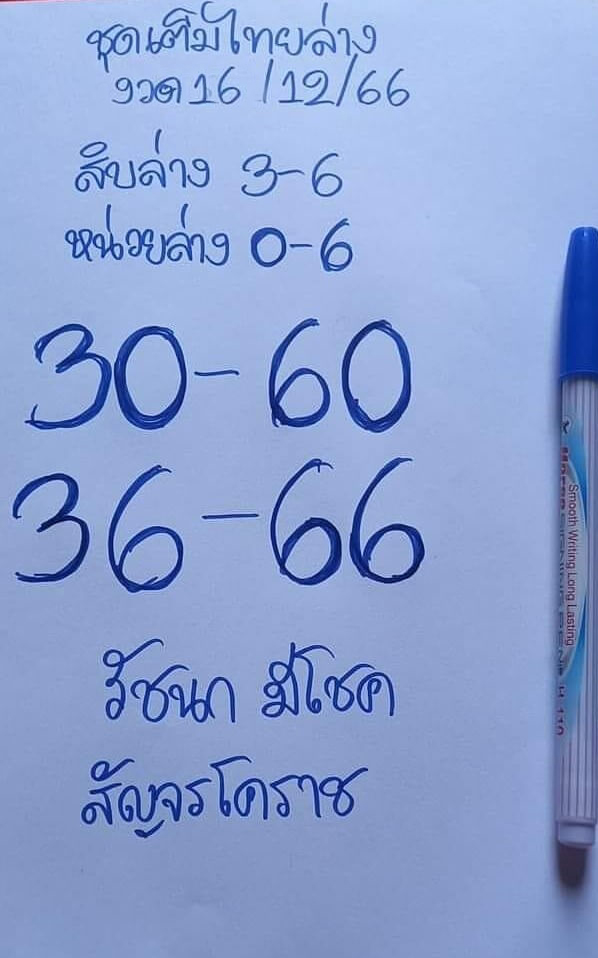 ชุดเต็มไทยล่าง
งวด 16/12/66
สิบล่าง 3-6
หน่วยล่าง 0-6
30-60
36-66
รัชนก มีโชค
สัญจรโคราช
Smooth Writing Long Lasting